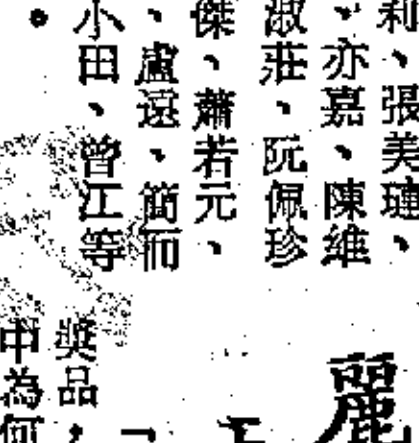 利、張美璉、
、亦嘉、陳維
淑莊、阮佩珍
傑、蕭若元、
、盧遠、簡而
小田、曾江等
。
麗
獎品，
中為何